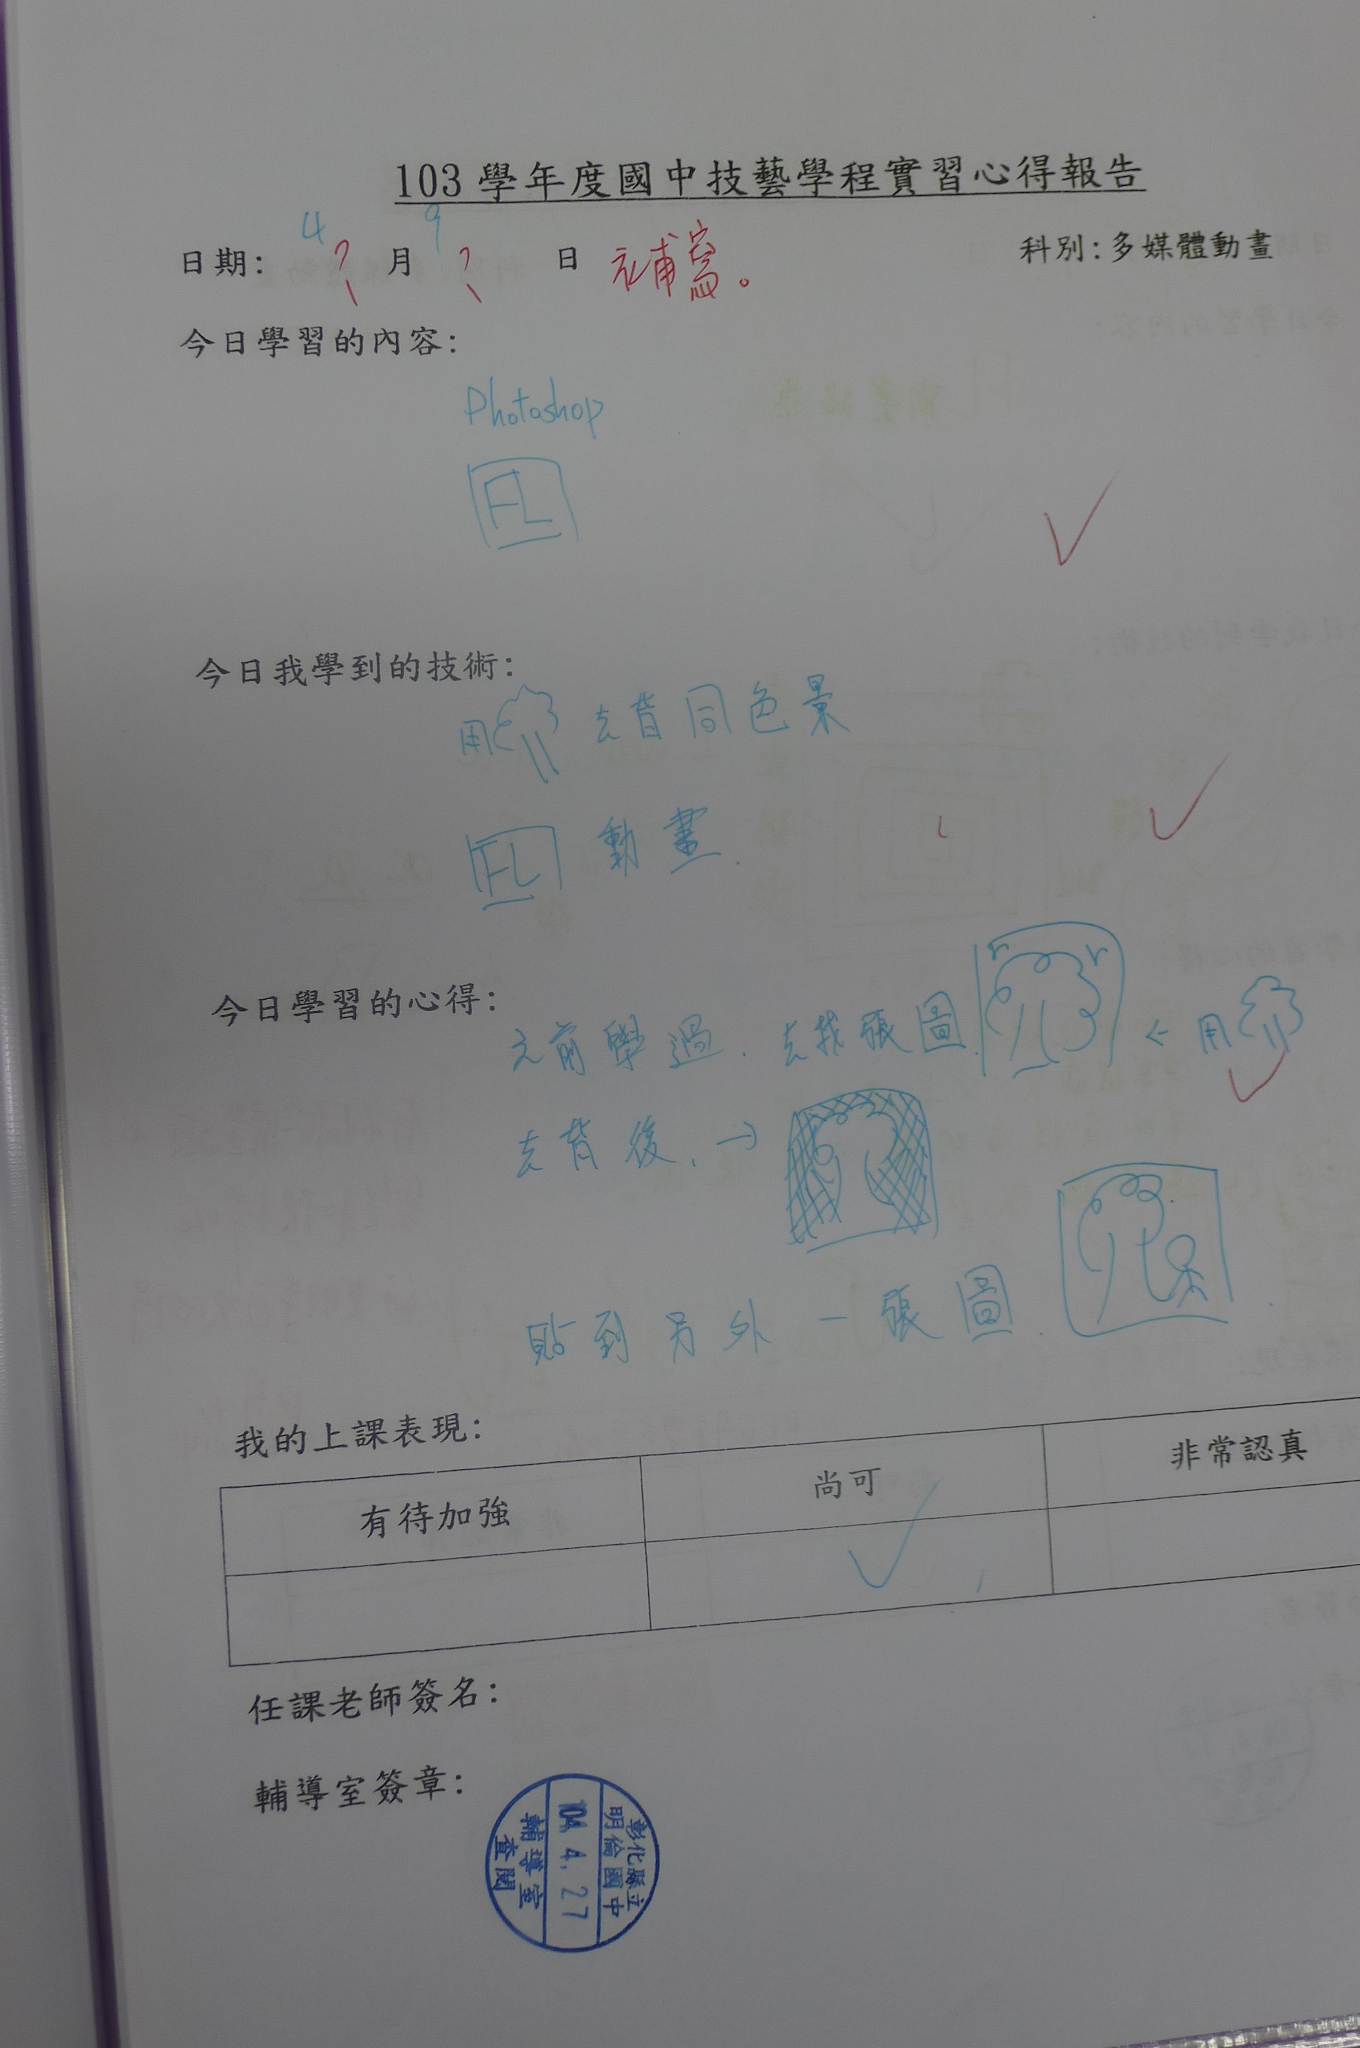 103學年度國中技藝學程實習心得報告
日期: 4 ? 月 9 ? 日 補寫。 科別:多媒體動畫
今日學習的內容:
Photoshop
FL
今日我學到的技術:
用 去背同色景
FL 動畫.
今日學習的心得:
之前學過.去找張圖. ← 用
去背後.→
貼到另外一張圖.
我的上課表現:
有待加強 尚可 非常認真
任課老師簽名:
輔導室簽章:
彰化縣立
明倫國中
104. 4. 27
輔導室
查閱